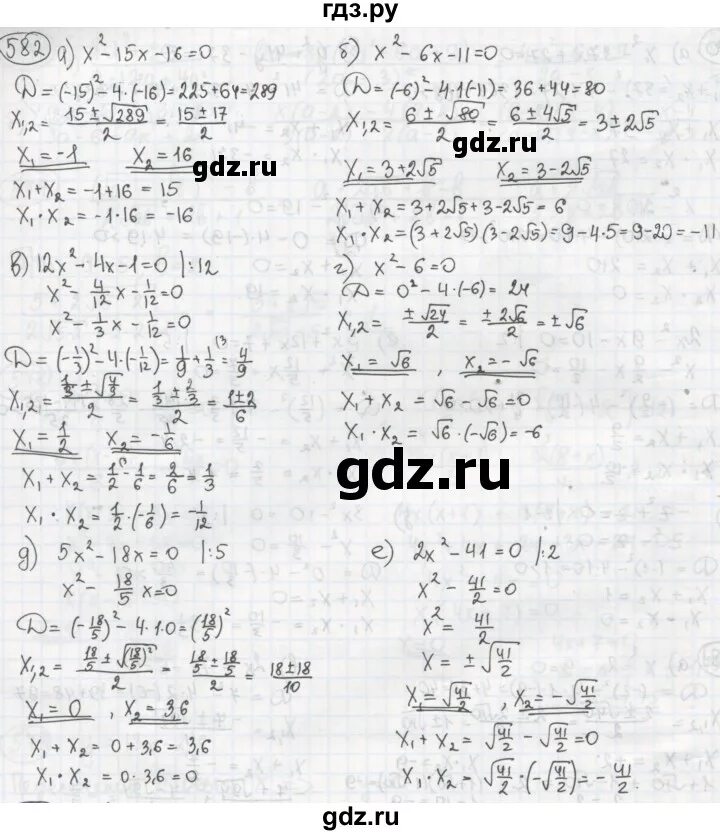 гдз.ру
582 а) x² - 15x - 16 = 0
D = (-15)² - 4·(-16) = 225 + 64 = 289
x₁,₂ = (15 ± √289)/2 = (15 ± 17)/2
x₁ = -1 x₂ = 16
x₁ + x₂ = -1 + 16 = 15
x₁ · x₂ = -1 · 16 = -16
б) x² - 6x - 11 = 0
D = (-6)² - 4·1(-11) = 36 + 44 = 80
x₁,₂ = (6 ± √80)/2 = (6 ± 4√5)/2 = 3 ± 2√5
x₁ = 3 + 2√5 x₂ = 3 - 2√5
x₁ + x₂ = 3 + 2√5 + 3 - 2√5 = 6
x₁ · x₂ = (3 + 2√5)(3 - 2√5) = 9 - 4·5 = 9 - 20 = -11
gdz.ru
gdz.ru
в) 12x² - 4x - 1 = 0 |:12
x² - 4/12 x - 1/12 = 0
x² - 1/3 x - 1/12 = 0
D = (-1/3)² - 4·(-1/12) = 1/9 + 1/3 = 4/9
x₁,₂ = (1/3 ± √4/9)/2 = (1/3 ± 2/3)/2 = (1 ± 2)/6
x₁ = 1/2 x₂ = -1/6
x₁ + x₂ = 1/2 - 1/6 = 2/6 = 1/3
x₁ · x₂ = 1/2 · (-1/6) = -1/12
г) x² - 6 = 0
D = 0² - 4·(-6) = 24
x₁,₂ = ±√24/2 = ±2√6/2 = ±√6
x₁ = √6 , x₂ = -√6
x₁ + x₂ = √6 - √6 = 0
x₁ · x₂ = √6 · (-√6) = -6
gdz.ru
д) 5x² - 18x = 0 |:5
x² - 18/5 x = 0
D = (-18/5)² - 4·1·0 = (18/5)²
x₁,₂ = (18/5 ± √(18/5)²)/2 = (18/5 ± 18/5)/2 = (18 ± 18)/10
x₁ = 0 , x₂ = 3,6
x₁ + x₂ = 0 + 3,6 = 3,6
x₁ · x₂ = 0 · 3,6 = 0
е) 2x² - 41 = 0 |:2
x² - 41/2 = 0
x² = 41/2
x = ±√41/2
x₁ = √41/2 , x₂ = -√41/2
x₁ + x₂ = √41/2 - √41/2 = 0
x₁ · x₂ = √41/2 · (-√41/2) = -41/2
gdz.ru
gdz.ru
gdz.ru